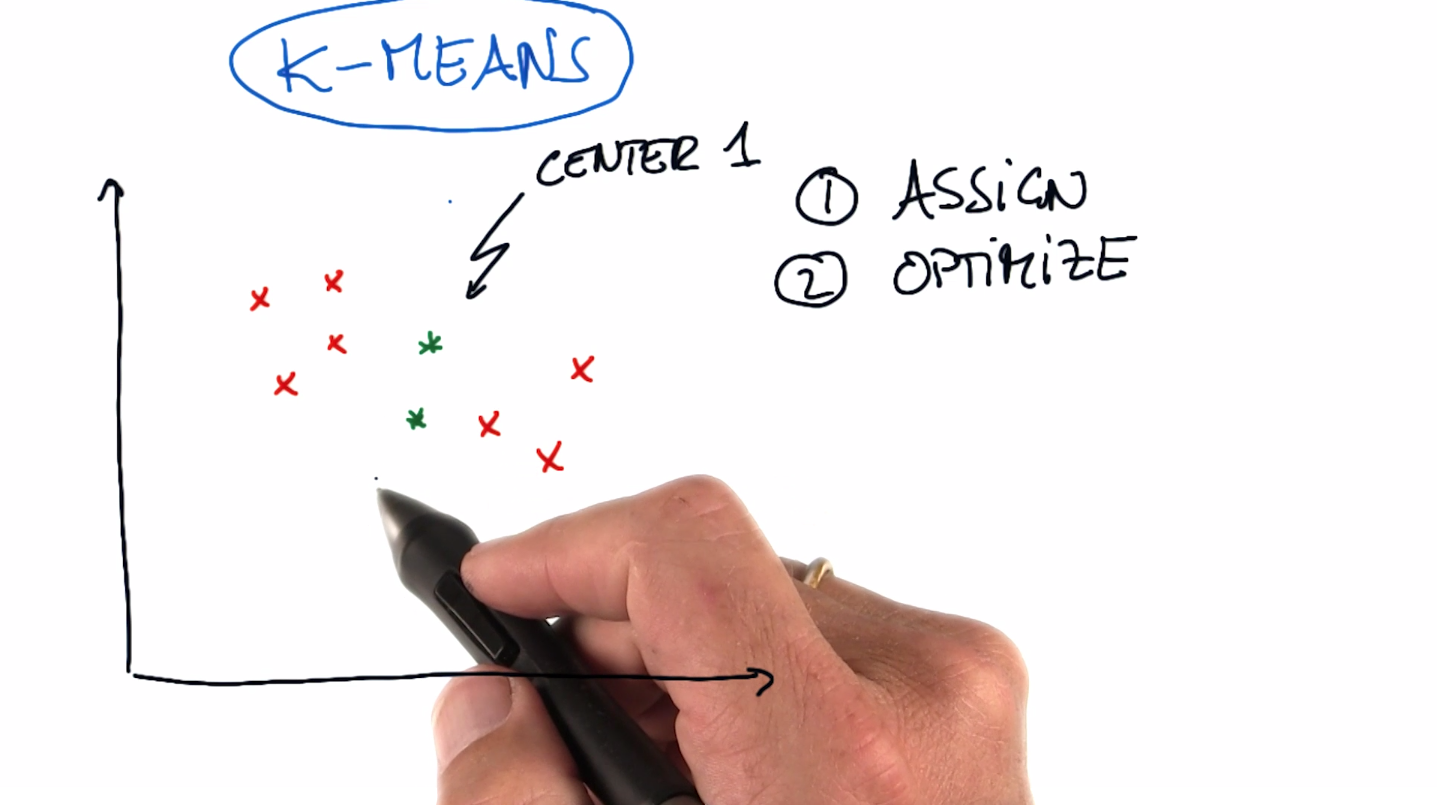 K-MEANS
CENTER 1
1 ASSIGN
2 OPTIMIZE